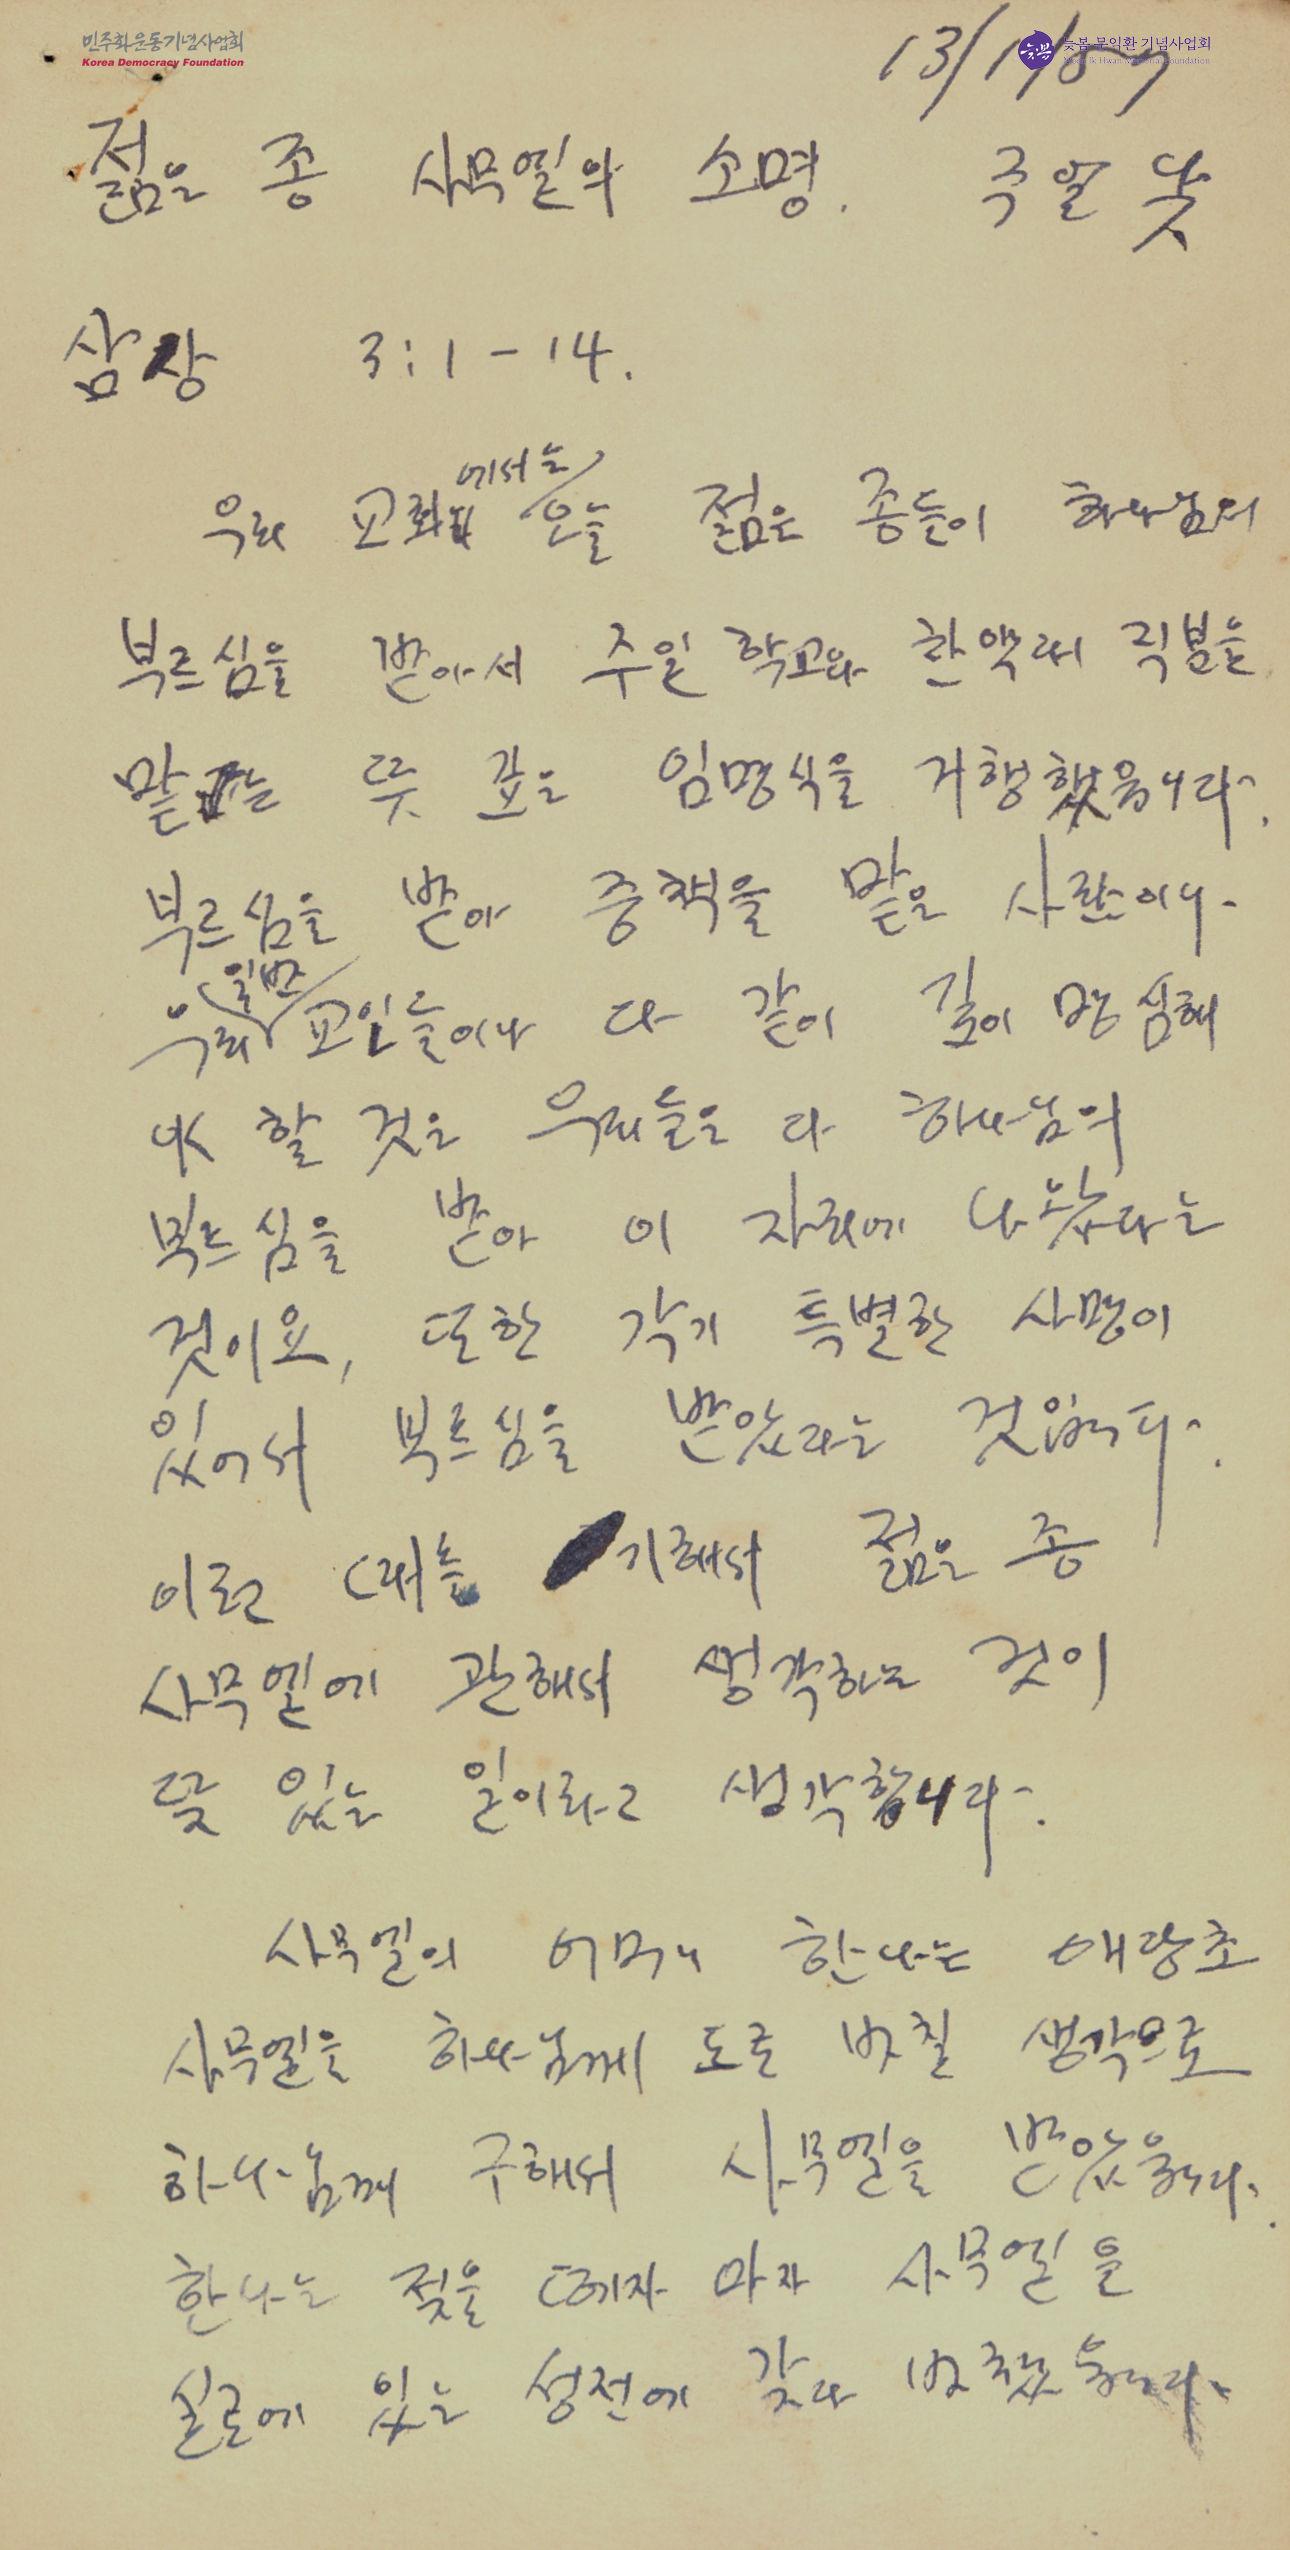 민주화운동기념사업회
Korea Democracy Foundation
늦봄
늦봄 문익환 기념사업회
Moon Ik Hwan Memorial Foundation
13/1/57
젊은 종 사무엘의 소명. 주일 낮
삼상 3:1-14.
에서는
우리 교회 오늘 젊은 종들이 하나님의
부르심을 받아서 주일 학교와 찬양대 직분을
맡는 뜻 깊은 임명식을 거행했읍니다.
부르심을 받아 중책을 맡은 사람이나
일반
우리 교인들이나 다 같이 깊이 명심해
야 할 것은 우리들은 다 하나님의
부르심을 받아 이 자리에 나왔다는
것이요, 또한 각기 특별한 사명이
있어서 부르심을 받았다는 것입니다.
이런 때를 기해서 젊은 종
사무엘에 관해서 생각하는 것이
뜻 있는 일이라고 생각합니다.
사무엘의 어머니 한나는 애당초
사무엘을 하나님께 도로 바칠 생각으로
하나님께 구해서 사무엘을 받았읍니다.
한나는 젖을 떼자 마자 사무엘을
실로에 있는 성전에 갖다 바쳤읍니다.